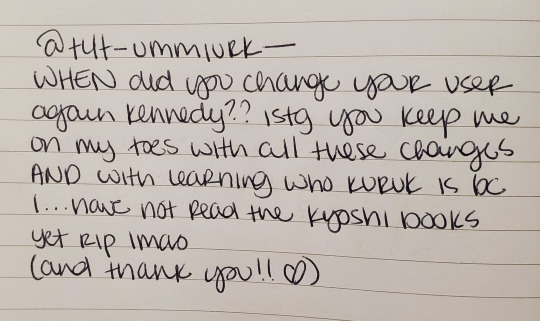 @tyt-ummiurk—
WHEN did you change your user
again kennedy?? istg you keep me
on my toes with all these changes
AND with learning who KURUK IS bc
I...have not read the kyoshi books
yet RIP lmao
(and thank you!! ♡)